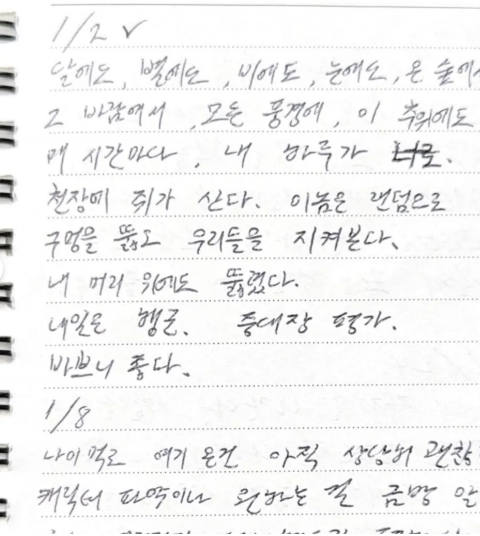 1/2 ✓
달에도, 별에도, 비에도, 눈에도, 온 숲에서
그 바람에서, 모든 풍경에, 이 추위에도
매 시간마다, 내 하루가 너로.
천장에 쥐가 산다. 이놈은 랜덤으로
구멍을 뚫고 우리들을 지켜본다.
내 머리 위에도 뚫렸다.
내일은 행군. 중대장 평가.
바쁘니 좋다.
1/8
나이 먹고 여기 온건 아직 상당히 괜찮
캐릭터 파악이나 원하는 걸 금방 알